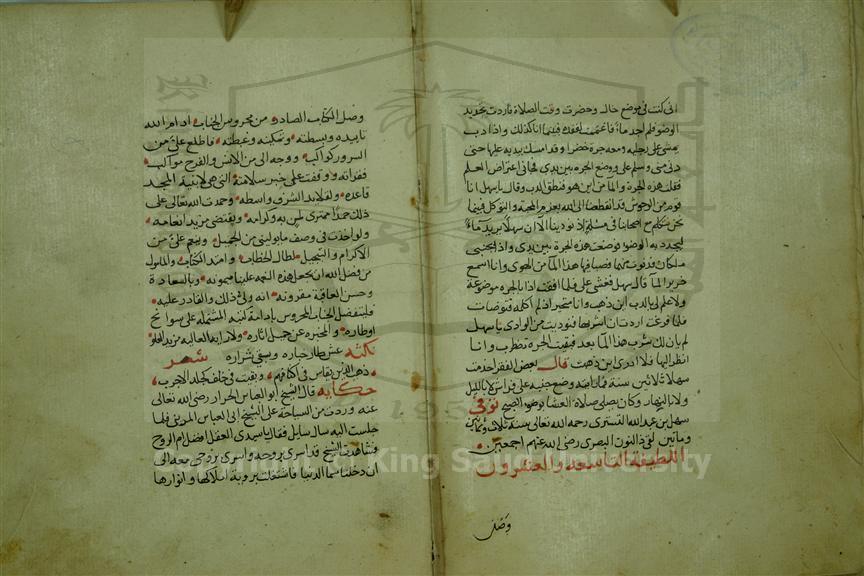 انى كنت فى موضع خال وحضرت وقت الصلاة فاردت تجديد
الوضوء فلم اجد ماء فاغتممت لفقده فبينما انا كذلك واذا دب
يمشى على رجليه ومعه جرة خضرا وقد امسك بيديه عليها حتى
دنى منى وسلم على ووضع الجره بين يدى فجانى اعتراض العلم
فقلت هذه الجرة والما من اين هو فنطق الدب وقال يا سهل انا
قوم من الوحوش قد انقطعنا الى الله بعزم المحبة والتوكل فبينما
نحن نتكلم مع اصحابنا فى مسئلة اذ نودينا الا ان سهلا يريد ماء
ليجدد به الوضوء فوضعت هذه الجرة بين يدى واذا بجنبى
ملكان فدنوت منهما فصبا فيها هذا الما من الهوى وانا اسمع
خرير الما قال سهل فغشى على فلما افقت اذا بالجره موضوعة
ولا علم لى بالدب اين ذهب وانا متحير اذ لم اكلمه فتوضات
فلما فرغت اردت ان اشربها فنوديت من الوادى يا سهل
لم يان لك شرب هذا الما بعد فبقيت الجره تضطرب وانا
انظر اليها فلا ادرى اين ذهبت قال بعض الفقرا خدمت
سهلا ثلاثين سنة فما رايته وضع جنبه على فراش لا بالليل
ولا بالنهار وكان يصلى صلاة العشا بوضوء الصبح توفى
سهل بن عبد الله التسترى رحمه الله تعالى سنة ثلاث وثمانين
وماتين لقى ذا النون المصرى رضى الله عنهم اجمعين
اللطيفة التاسعة والعشرون
وصل
وصل الكتاب الصادر من محروس الجناب ادام الله
تاييده وبسطته وتمكينه وغبطته فاطلع على من
السرور كواكب ووجه الى من الانس والفرح مواكب
فقراته ووقفت على خبر سلامته التى هى لابنية المجد
قاعده ولقلايد الشرف واسطه وحمدت الله تعالى على
ذلك حمدا ممترى لمننه وكرامه ويقتضى مزيد انعامه
ولو اخذت فى وصف ما يولينى من الجميل ويعم على من
الاكرام والتبجيل لطال الخطاب وامتد الكتاب والمامول
من فضل الله ان يجعل هذه النعمه علينا ميمونه وبالسعادة
وحسن العاقبة مقرونه انه ولى ذلك والقادر عليه
فليتفضل الجناب المحروس بادامة لمنه المشتمله على سوانح
اوطاره والمخبره عن جميل اثاره ولا رايه العاليه مزيد العلو
نكته عش طار خياره وبقى شراره شعر
ذهب الذين يعاش فى اكنافهم وبقيت فى خلف كجلد الاجرب
حكايه قال الشيخ ابو العباس الحرار رضى الله تعالى
عنه وردت من السياحة على الشيخ ابى العباس المرينى فلما
جلست اليه ساله سايل فقال يا سيدى العقل افضل ام الروح
فشاهدت الشيخ قد اسرى بروحه واسرى بروحى معه الى
ان دخلنا سما الدنيا فاشتغلت بروية املاكها وانوارها
King Saud University
195